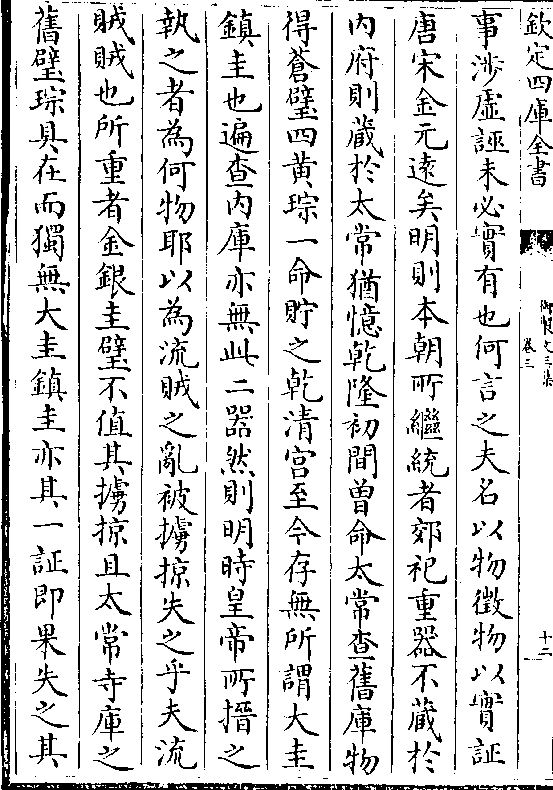 欽定四庫全書
御製文三集
卷三
十二
事渉虛誣未必實有也何言之夫名以物徵物以實証
唐宋金元逺矣明則本朝所繼統者郊祀重器不藏於
内府則藏於太常猶憶乾隆初間曽命太常查舊庫物
得蒼璧四黄琮一命貯之乾清宫至今存無所謂大圭
鎮圭也遍查内庫亦無此二器然則明時皇帝所搢之
執之者為何物耶以為流賊之亂被擄掠失之乎夫流
賊賊也所重者金銀圭璧不值其擄掠且太常寺庫之
舊璧琮具在而獨無大圭鎮圭亦其一証即果失之其